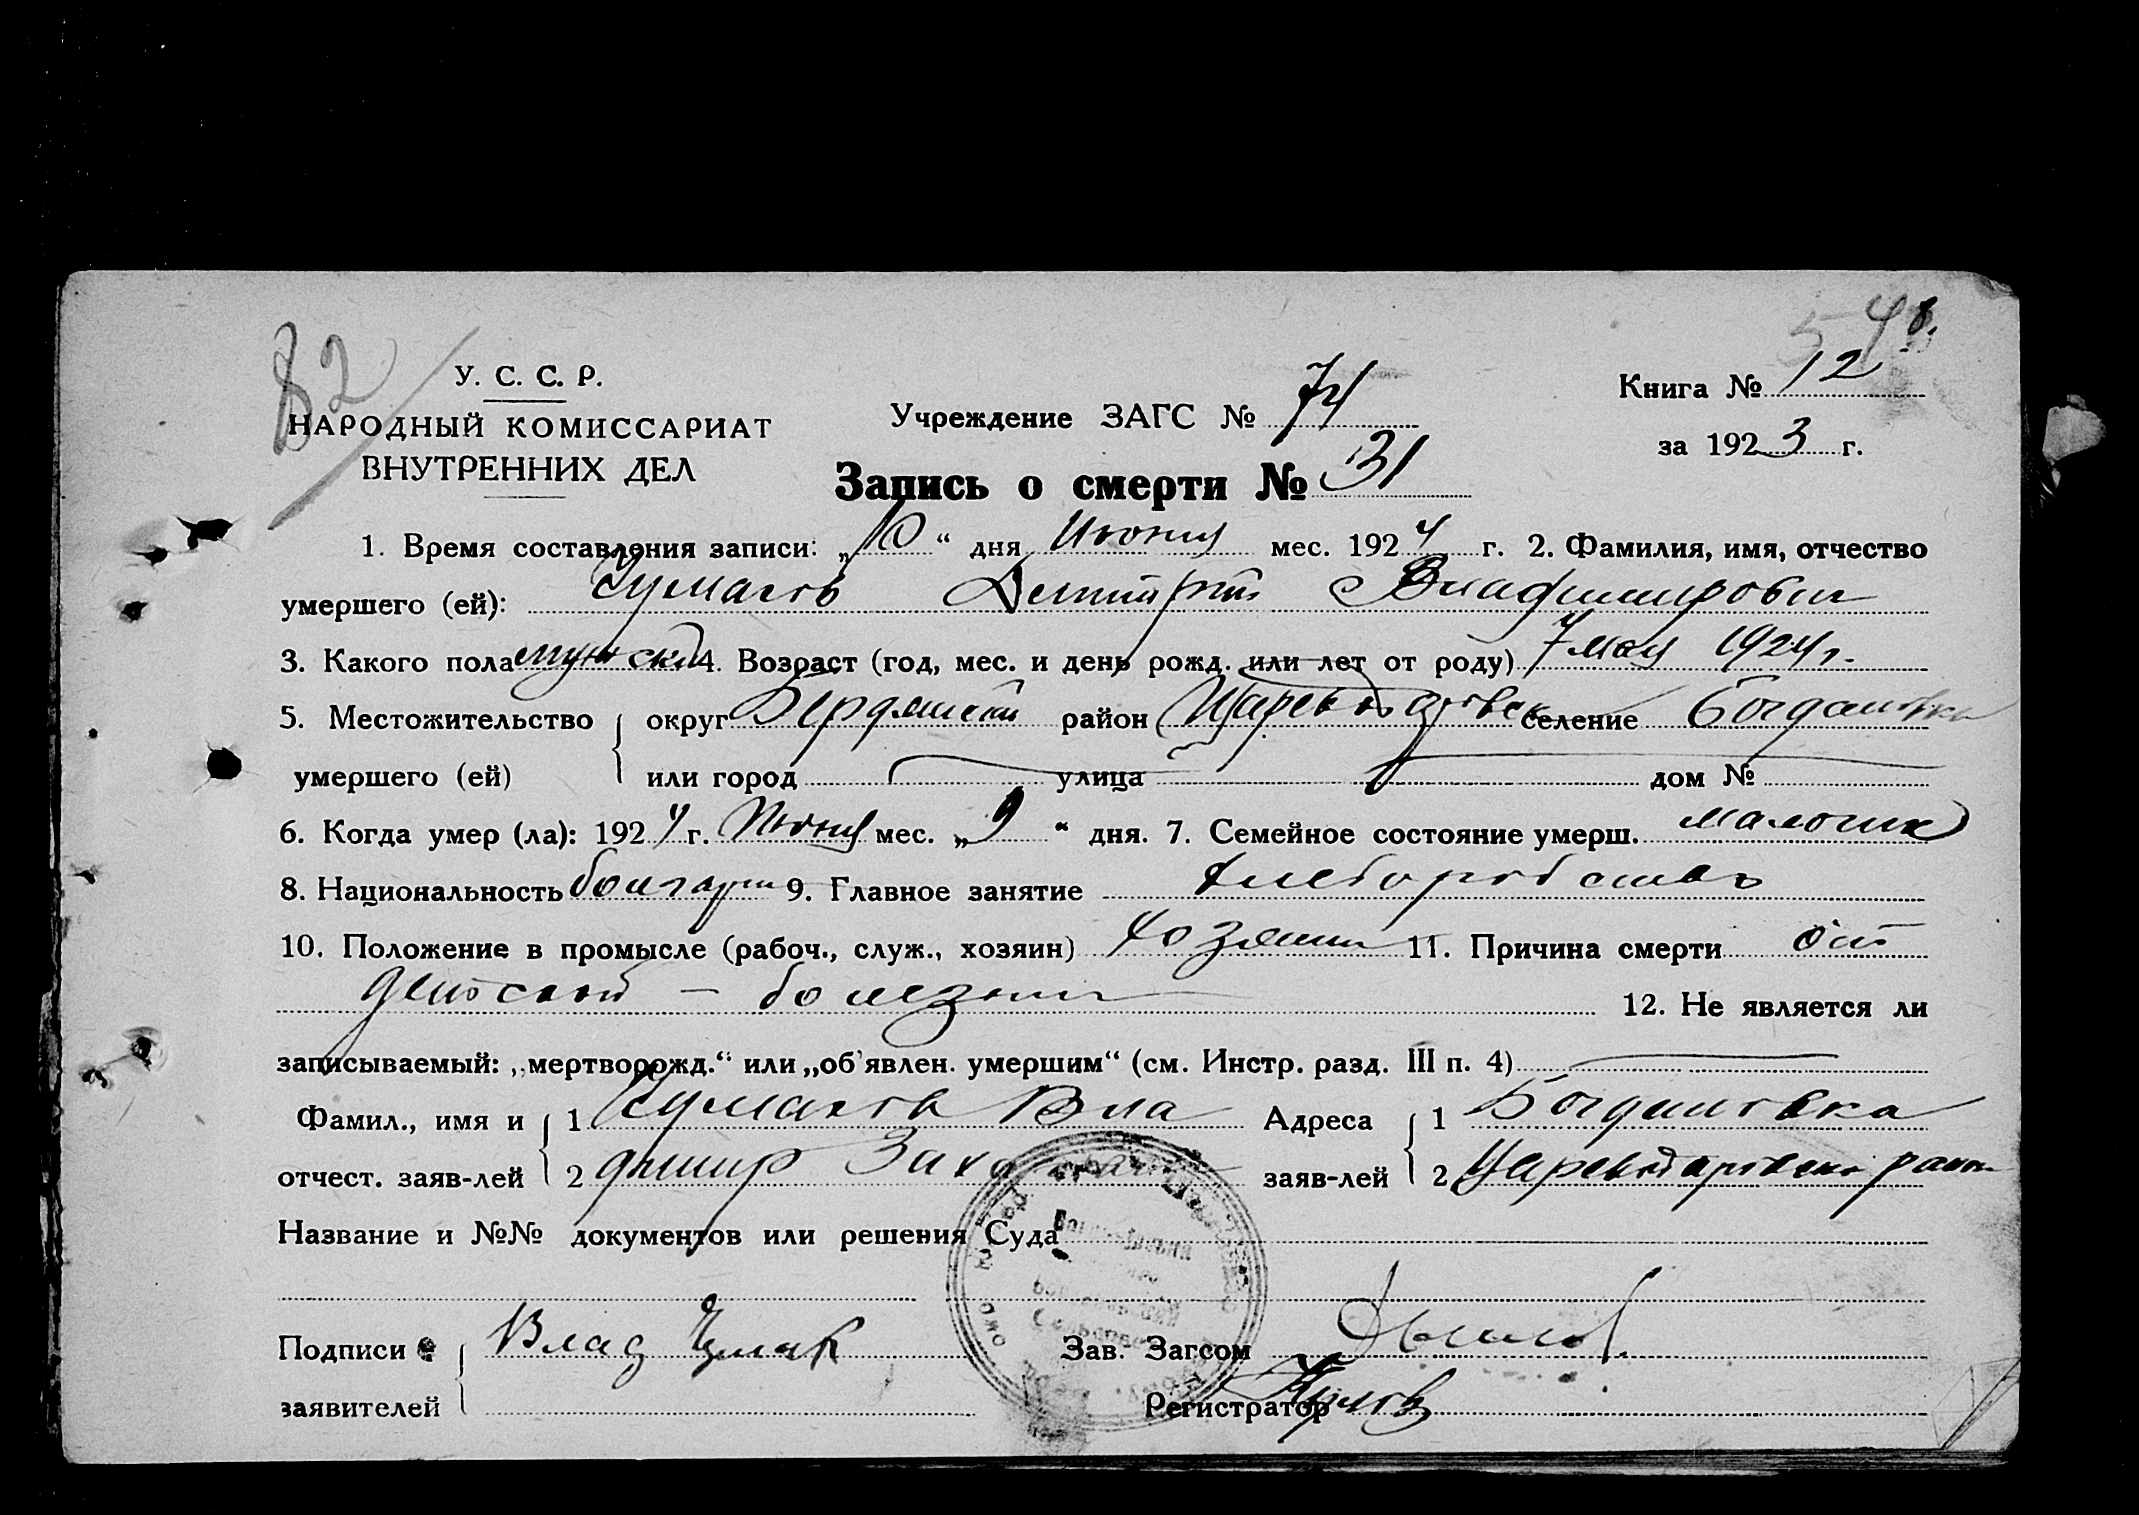 82
548.
У. С. С. Р.
НАРОДНЫЙ КОМИССАРИАТ
ВНУТРЕННИХ ДЕЛ
Учреждение ЗАГС № 74
Книга № 12
за 1923 г.
Запись о смерти № 31
1. Время составления записи: „10“ дня Июня мес. 1924 г. 2. Фамилия, имя, отчество
умершего (ей): Чумаков Дмитрий Владимирович
3. Какого пола мужски 4. Возраст (год, мес. и день рожд. или лет от роду) 7 мая 1924 г.
5. Местожительство округ Бердянский район Царевода­ровск селение Богдановка
умершего (ей) или город улица дом №
6. Когда умер (ла): 1924 г. Июня мес. „9“ дня. 7. Семейное состояние умерш.
8. Национальность болгарин 9. Главное занятие хлеборобство
10. Положение в промысле (рабоч., служ., хозяин) хозяин 11. Причина смерти от
детской - болезни 12. Не является ли
записываемый: „мертворожд.“ или „об'явлен. умершим“ (см. Инстр. разд. III п. 4)
Фамил., имя и 1 Чумаков Вла Адреса 1 Богдановка
отчест. заяв-лей 2 димир заяв-лей 2 район
Название и №№ документов или решения Суда
Подписи Влад Зав. Загсом
заявителей Регистратор